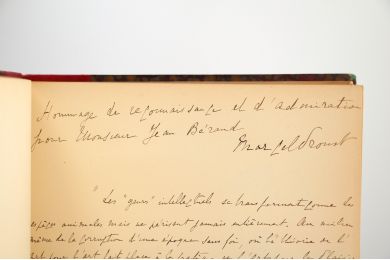 Hommage de reconnaissance et d'admiration
pour Monsieur Jean Béraud
Marcel Proust
Les "gens" intellectuels se transforment comme les
espèces animales mais ne périssent jamais entièrement. Au milieu
même de la corruption d'une époque sans foi, où la théorie de l'
art pour l'art fait place à